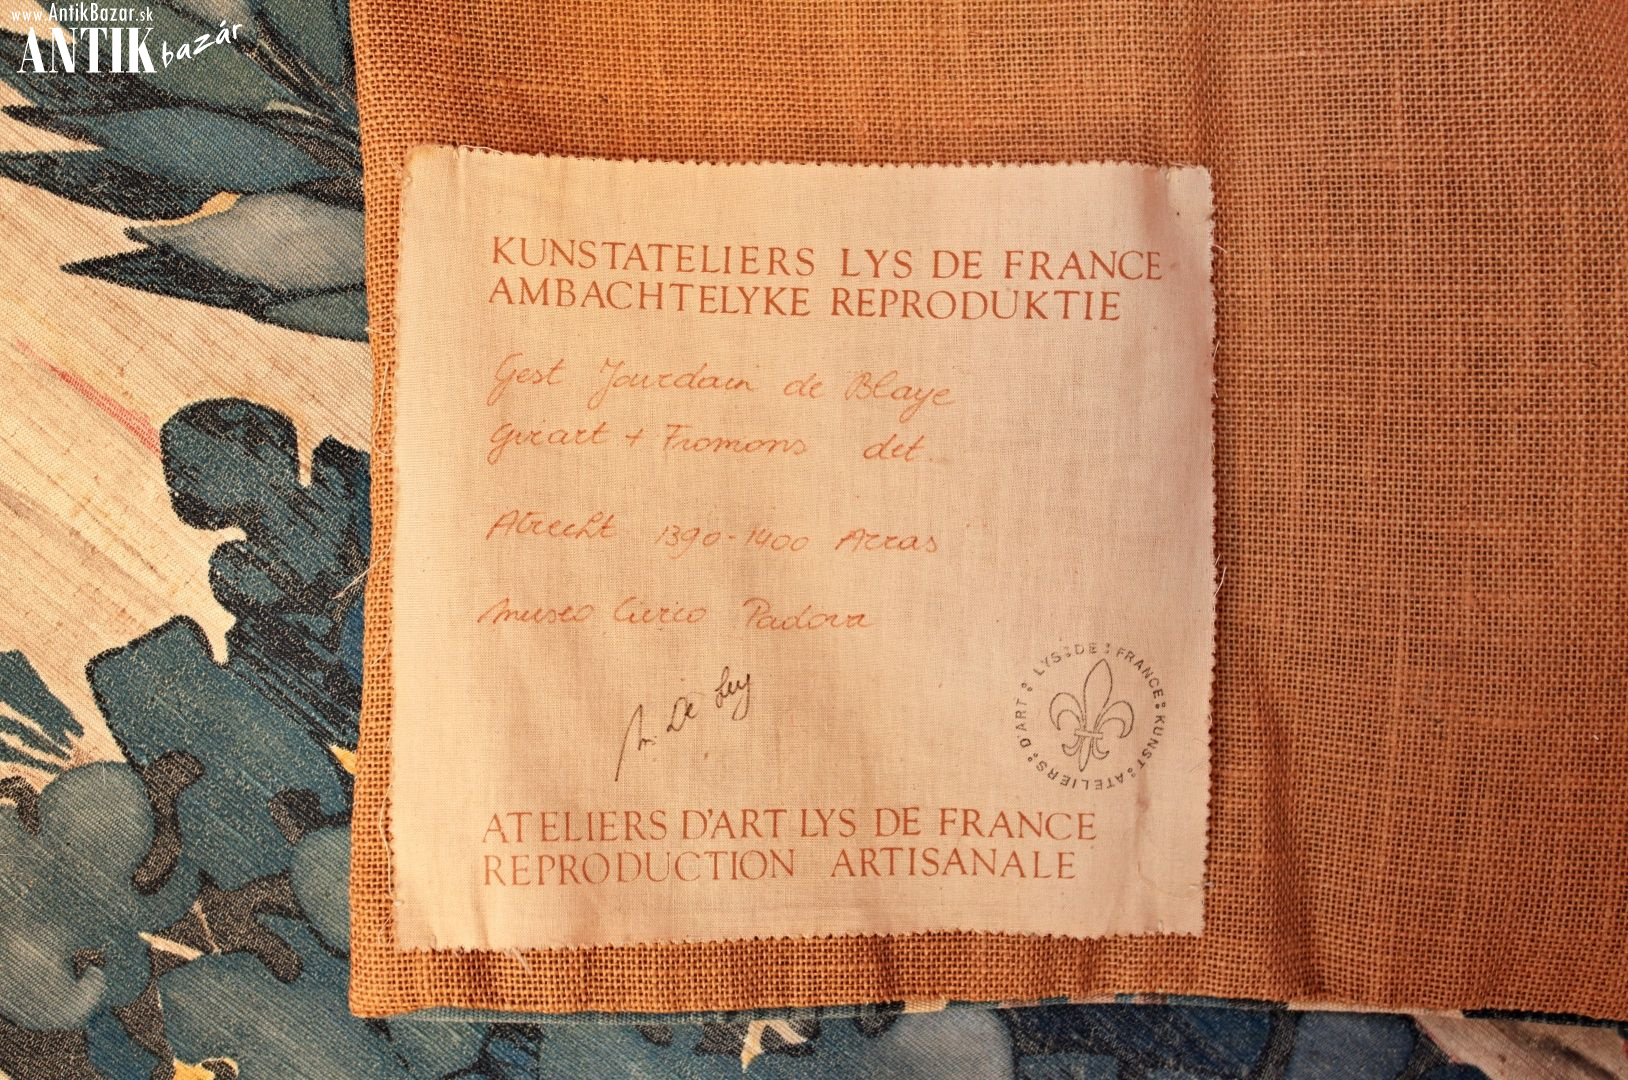 www.AntikBazar.sk
ANTIK bazár
KUNSTATELIERS LYS DE FRANCE
AMBACHTELYKE REPRODUKTIE
Gest Jourdain de Blaye
Girart + Fromons det.
Atrecht 1390-1400 Arras
Museo Civico Padova
ATELIERS D'ART LYS DE FRANCE
REPRODUCTION ARTISANALE
ATELIERS D'ART LYS DE FRANCE KUNST